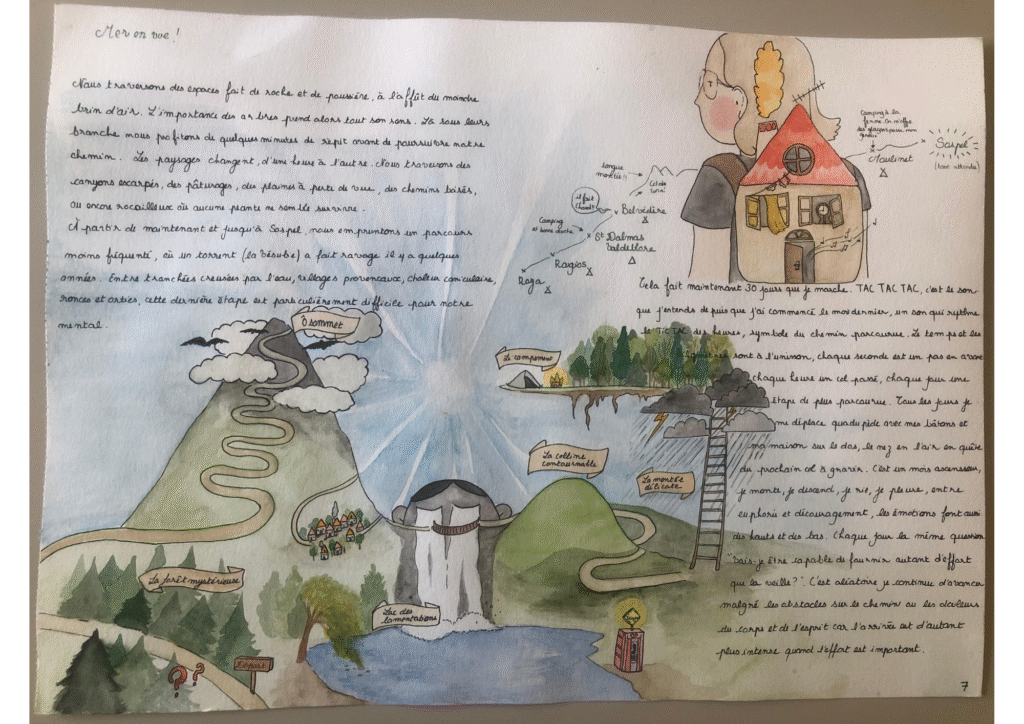 Mer en vue !
Nous traversons des espaces fait de roche et de poussière, à l'affût du moindre
brin d'air. L'importance des arbres prend alors tout son sens. Là sous leurs
branche nous profitons de quelques minutes de répit avant de poursuivre notre
chemin. Les paysages changent, d'une heure à l'autre. Nous traversons des
canyons escarpés, des pâturages, des plaines à perte de vue, des chemins boisés,
ou encore rocailleux où aucune plante ne semble survivre.
À partir de maintenant et jusqu'à Sospel, nous empruntons un parcours
moins fréquenté, où un torrent (la vésubie) a fait ravage il y a quelques
années. Entre tranchées creusées par l'eau, villages provenceaux, chaleur caniculaire,
ronces et orties, cette dernière étape est particulièrement difficile pour notre
mental.
Camping à la
ferme. On m'offre
des glaçons pour mon
genou
Moulinet
Sospel
(tant attendu)
longue
montée !!
Col de
turini
il fait
chaud !!
Belvédère
Camping
et bonne douche
St Dalmas
Valdeblore
Ragios
Roya
Cela fait maintenant 30 jours que je marche. TAC TAC TAC, c'est le son
que j'entends depuis que j'ai commencé le mois dernier, un son qui rythme
le TIC TAC des heures, symbole du chemin parcourue. Le temps et les
kilomètres sont à l'unisson, chaque seconde est un pas en avant
chaque heure un col passé, chaque jour une
étape de plus parcourue. Tous les jours je
me déplace quadrupède avec mes bâtons et
ma maison sur le dos, le nez en l'air en quête
du prochain col à gravir. C'est un mois ascenseur,
je monte, je descend, je rie, je pleure, entre
euphorie et découragement, les émotions font aussi
des hauts et des bas. Chaque jour la même question
"Vais-je être capable de fournir autant d'effort
que la veille ?". C'est aléatoire je continue d'avancer
malgré les obstacles sur le chemin ou les douleurs
du corps et de l'esprit car l'arrivée est d'autant
plus intense quand l'effort est important.
Ô sommet
Le campement
La colline
contournable
La montée
délicate
La forêt mystérieuse
Lac des
lamentations
Départ
? ?
7